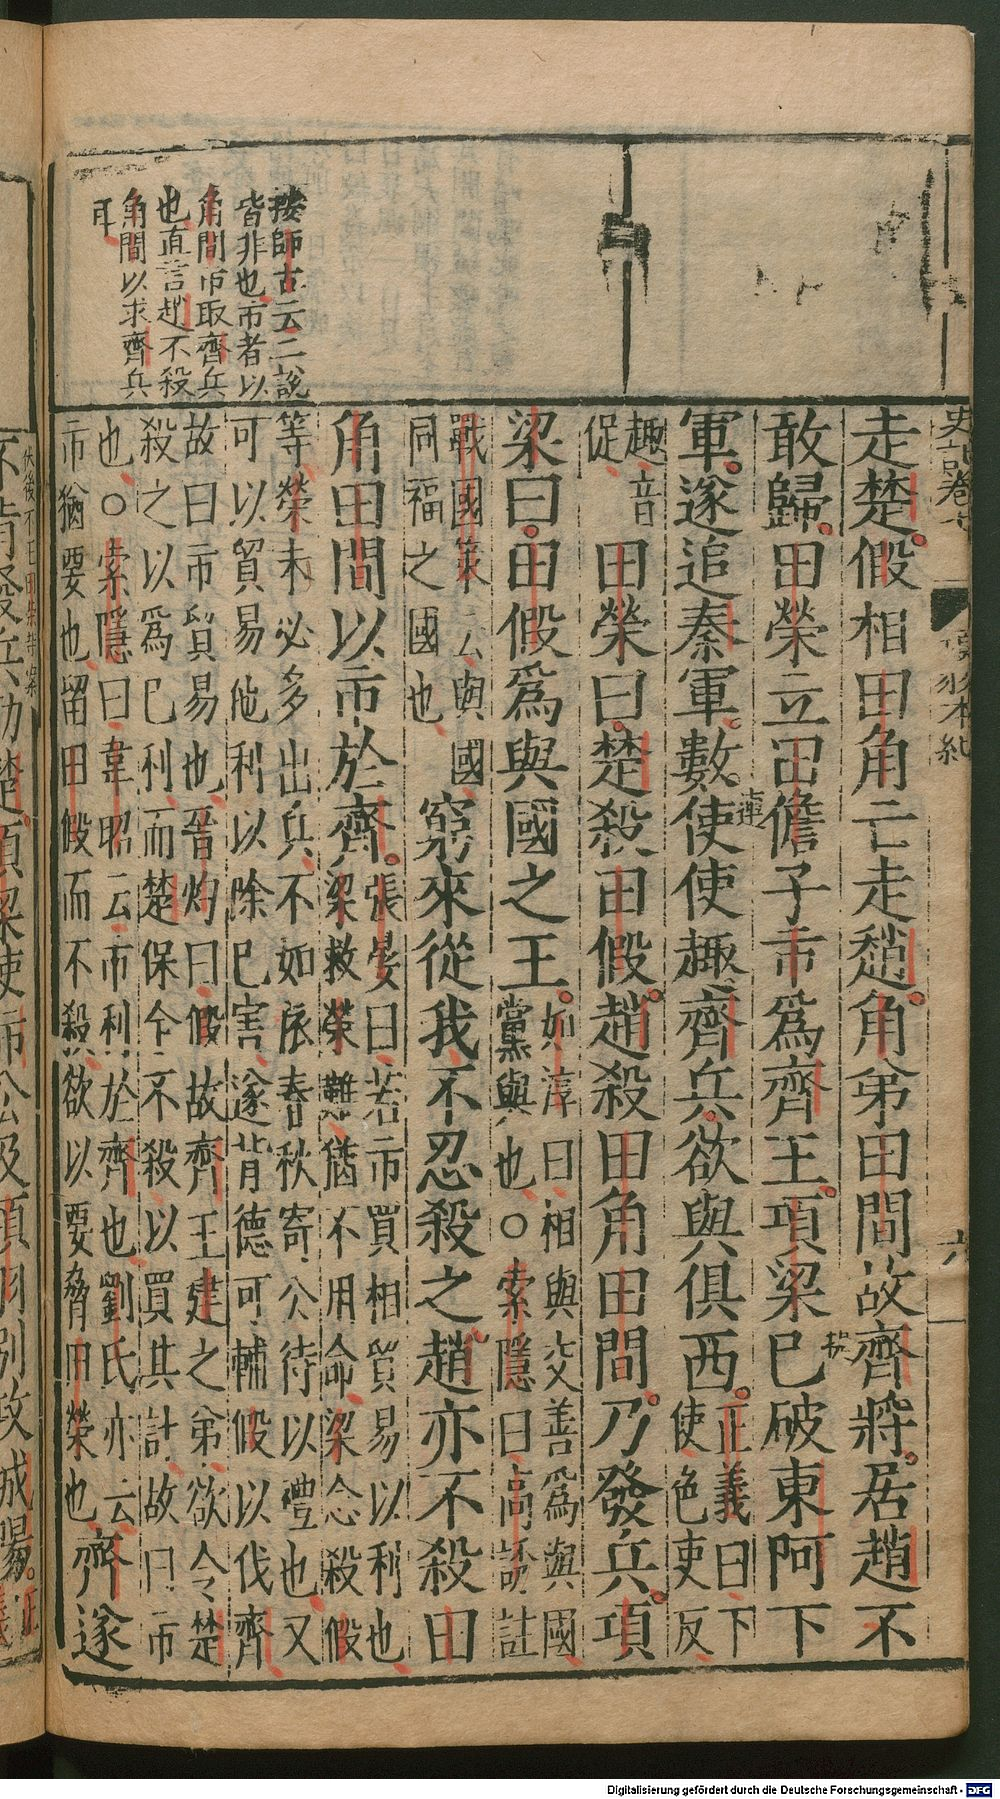 史記卷七
項羽本紀
六
走楚假相田角亡走趙角弟田間故齊將居趙不
敢歸田榮立田儋子市爲齊王項梁已破東阿下
軍遂追秦軍數使使趣齊兵欲與俱西正義曰下
使色吏反
趣音
促
田榮曰楚殺田假趙殺田角田間乃發兵項
梁曰田假爲與國之王如淳曰相與交善爲與國
黨與也○索隱曰高誘註
戰國策云與國
同福之國也
窮來從我不忍殺之趙亦不殺田
角田間以市於齊張晏曰若市買相貿易以利也
梁救榮難猶不用命梁念殺假
等榮未必多出兵不如依春秋寄公待以禮也又
可以貿易他利以除己害遂背德可輔假以伐齊
故曰市貿易也晉灼曰假故齊王建之弟欲令楚
殺之以爲已利而楚保全不殺以買其計故曰市
也○索隱曰韋昭云市利於齊也劉氏亦云
市猶要也留田假而不殺欲以要脅田榮也
齊遂
按師古云二說
皆非也市者以
角間市取齊兵
也直言趙不殺
角間以求齊兵
耳
不肯發兵助楚項梁使沛公及項羽別攻城陽
Digitalisierung gefördert durch die Deutsche Forschungsgemeinschaft - DFG